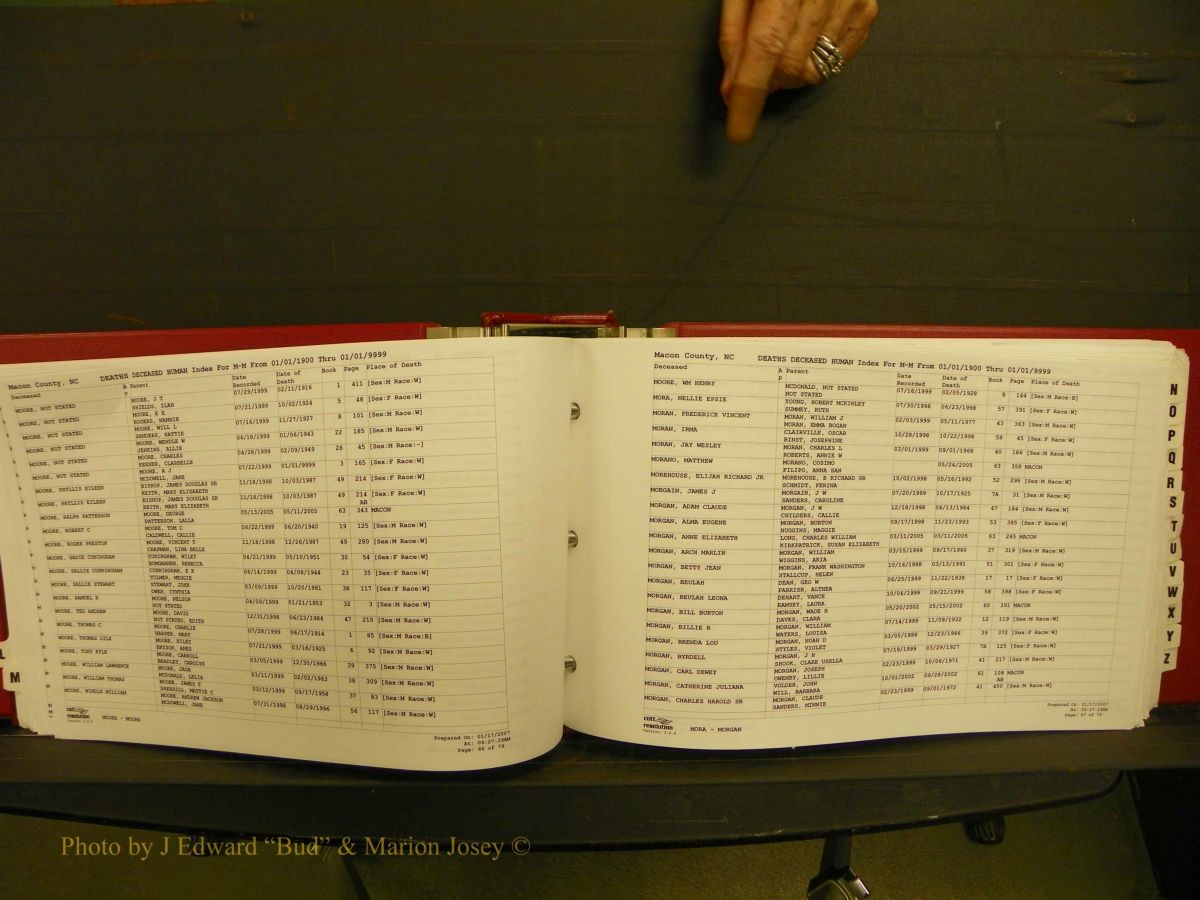 Macon County, NC DEATHS DECEASED HUMAN Index For M-M From 01/01/1900 Thru 01/01/9999
Deceased A Parent Date Recorded Date of Death Book Page Place of Death
P
MOORE, NOT STATED MOORE, J T 07/29/1999 02/11/1916 1 411 [Sex:M Race:W]
SHIELDS, ILAH
MOORE, NOT STATED MOORE, E E 07/21/1999 10/02/1924 5 48 [Sex:F Race:W]
ROGERS, NANNIE
MOORE, NOT STATED MOORE, WILL L 07/16/1999 11/27/1927 8 101 [Sex:M Race:W]
SANDERS, HATTIE
MOORE, NOT STATED MOORE, WENDLE W 06/18/1999 01/06/1943 22 185 [Sex:M Race:W]
JENKINS, ALLIE
MOORE, NOT STATED MOORE, CHARLES 04/28/1999 02/09/1949 28 45 [Sex:M Race:-]
KEENER, CLARBELLE
MOORE, NOT STATED MOORE, A J 07/22/1999 01/01/9999 3 165 [Sex:F Race:W]
MCDOWELL, JANE
MOORE, PHYLLIS EILEEN BISHOP, JAMES DOUGLAS SR 11/18/1998 10/03/1987 49 214 [Sex:F Race:W]
KEITH, MARY ELIZABETH
MOORE, PHYLLIS EILEEN BISHOP, JAMES DOUGLAS SR 11/18/1998 10/03/1987 49 214 [Sex:F Race:W]
KEITH, MARY ELIZABETH AB
MOORE, RALPH PATTERSON MOORE, GEORGE 05/13/2005 05/11/2005 63 343 MACON
PATTERSON, LALLA
MOORE, ROBERT C MOORE, TOM C 06/22/1999 06/20/1940 19 125 [Sex:M Race:W]
CALDWELL, CALLIE
MOORE, ROGER PRESTON MOORE, VINCENT T 11/18/1998 12/26/1987 49 280 [Sex:M Race:W]
CHAPMAN, LINA BELLE
MOORE, SADIE CUNINGHAM CUNINGHAM, WILEY 04/21/1999 05/10/1951 30 54 [Sex:F Race:W]
BUMGARNER, REBECCA
MOORE, SALLIE CUNNINGHAM CUNNINGHAM, E E 06/14/1999 04/08/1944 23 35 [Sex:F Race:W]
TULMER, MEGGIE
MOORE, SALLIE STEWART STEWART, JOHN 03/09/1999 10/20/1961 38 117 [Sex:F Race:W]
OWEN, CYNTHIA
MOORE, SAMUEL R MOORE, NELSON 04/09/1999 01/21/1953 32 3 [Sex:M Race:W]
NOT STATED
MOORE, TED ANDREW MOORE, DAVID 12/31/1998 06/23/1984 47 210 [Sex:M Race:W]
NOT STATED, EDITH
MOORE, THOMAS C MOORE, CHARLIE 07/28/1999 06/17/1914 1 85 [Sex:M Race:B]
HARPER, MARY
MOORE, THOMAS LYLE MOORE, RILEY 07/21/1999 03/16/1925 6 92 [Sex:M Race:W]
BRYSON, AMES
MOORE, TONY KYLE MOORE, CARROLL 03/05/1999 12/30/1966 39 375 [Sex:M Race:W]
BRADLEY, CAROLYN
MOORE, WILLIAM LAWRENCE MOORE, JACK 03/11/1999 02/02/1963 38 309 [Sex:M Race:W]
MCDONALD, LELIA
MOORE, WILLIAM THOMAS MOORE, JAMES T 03/12/1999 09/17/1958 37 83 [Sex:M Race:W]
SHERRILL, MATTIE C
MOORE, WINDLE WILLIAM MOORE, ANDREW JACKSON 07/31/1998 08/29/1996 56 117 [Sex:M Race:W]
MCDOWELL, JANE
cott
resolution
MOORE - MOORE
Prepared On: 01/17/2007
At: 09:27:29AM
Page: 66 of 79
M
Macon County, NC DEATHS DECEASED HUMAN Index For M-M From 01/01/1900 Thru 01/01/9999
Deceased A Parent Date Recorded Date of Death Book Page Place of Death
P
MOORE, WM HENRY MCDONALD, NOT STATED 07/16/1999 02/05/1928 8 144 [Sex:M Race:B]
NOT STATED
MORA, NELLIE EPSIE YOUNG, ROBERT MCKINLEY 07/30/1998 06/23/1998 57 391 [Sex:F Race:W]
SUMMEY, RUTH
MORAN, FREDERICK VINCENT MORAN, WILLIAM J 02/03/1999 05/11/1977 43 363 [Sex:M Race:W]
MORAN, EMMA BOGAN
MORAN, IRMA CLAIRVILLE, OSCAR 10/28/1998 10/22/1998 58 45 [Sex:F Race:W]
BINST, JOSEPHINE
MORAN, JAY WESLEY MORAN, CHARLES L 03/01/1999 09/01/1968 40 186 [Sex:M Race:W]
ROBERTS, ANNIE W
MORANO, MATTHEW MORANO, COSIMO 05/24/2005 63 358 MACON
FILIPO, ANNA SAN
MOREHOUSE, ELIJAH RICHARD JR MOREHOUSE, E RICHARD SR 10/02/1998 05/18/1992 52 298 [Sex:M Race:W]
SCHMIDT, FERINA
MORGAIN, JAMES J MORGAIN, J W 07/20/1999 10/17/1925 7A 31 [Sex:M Race:W]
SANDERS, CAROLINE
MORGAN, ADAM CLAUDE MORGAN, J W 12/18/1998 04/13/1984 47 184 [Sex:M Race:W]
CHILDERS, CALLIE
MORGAN, ALMA EUGENE MORGAN, BURTON 09/17/1998 11/23/1993 53 385 [Sex:F Race:W]
HUGGINS, MAGGIE
MORGAN, ANNE ELIZABETH LONG, CHARLES WILLIAM 03/11/2005 03/11/2005 63 265 MACON
KIRKPATRICK, SUSAN ELIZABETH
MORGAN, ARCH MARLIN MORGAN, WILLIAM 03/15/1999 09/17/1960 37 319 [Sex:M Race:W]
WIGGINS, ARIA
MORGAN, BETTY JEAN MORGAN, FRANK WASHINGTON 10/16/1998 03/13/1991 51 301 [Sex:F Race:W]
STALLCUP, HELEN
MORGAN, BEULAH DEAN, GEO W 06/25/1999 11/22/1938 17 17 [Sex:F Race:W]
PARRISH, ALTHEA
MORGAN, BEULAH LEONA DEHART, VANCE 10/04/1999 09/21/1999 58 398 [Sex:F Race:W]
RAMSEY, LAURA
MORGAN, BILL BURTON MORGAN, WADE H 05/20/2002 05/15/2002 60 391 MACON
DAVES, CLARA
MORGAN, BILLIE R MORGAN, WILLIAM 07/14/1999 11/09/1932 12 119 [Sex:M Race:W]
WATERS, LOUISA
MORGAN, BRENDA LOU MORGAN, NOAH D 03/05/1999 12/23/1966 39 372 [Sex:F Race:W]
STYLES, VIOLET
MORGAN, BYRDELL MORGAN, J H 07/19/1999 03/29/1927 7B 125 [Sex:F Race:W]
SHOOK, CLARE USELLA
MORGAN, CARL DEWEY MORGAN, JOSEPH 02/23/1999 10/06/1971 41 217 [Sex:M Race:W]
OWENBY, LILLIE
MORGAN, CATHERINE JULIANA VOLDER, JOHN 10/01/2002 09/28/2002 61 108 MACON
WILL, BARBARA AB
MORGAN, CHARLES HAROLD SR MORGAN, CLAUDE 02/23/1999 09/01/1972 41 450 [Sex:M Race:W]
SANDERS, MINNIE
cott
resolution
MORA - MORGAN
Prepared On: 01/17/2007
At: 09:27:29AM
Page: 67 of 79
N
O
P
Q
R
S
T
U
V
W
X
Y
Z
Photo by J Edward “Bud” & Marion Josey ©